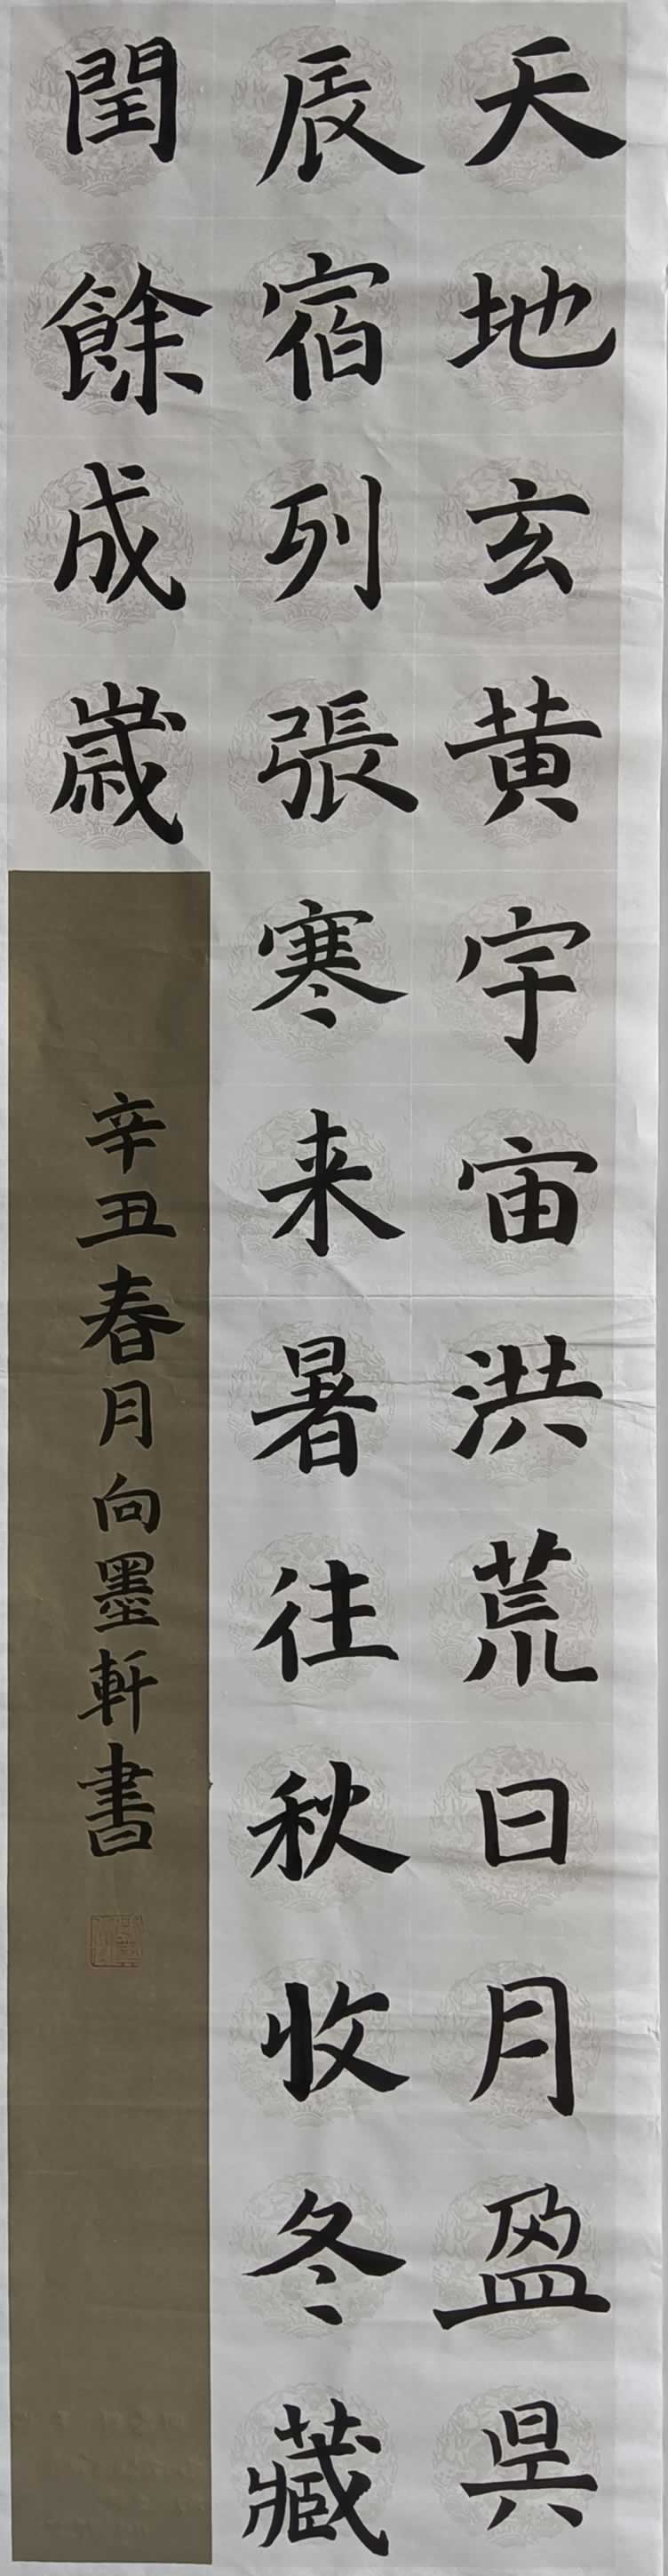 天地玄黄宇宙洪荒日月盈昃
辰宿列張寒来暑往秋收冬藏
閏餘成歲
辛丑春月向墨軒書